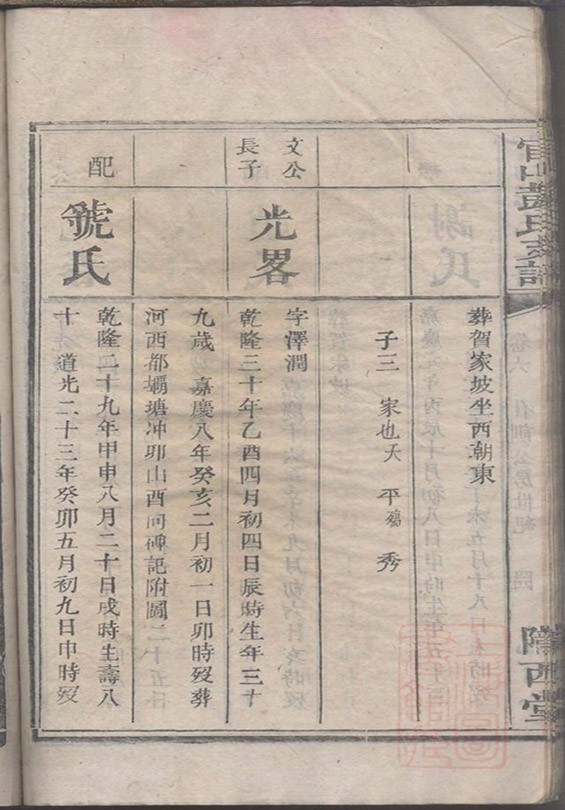 官山彭氏支譜
隴西堂
葬賀家坡坐西朝東
子三 家也夭 平殤 秀
文公
長子
光畧
字澤潤
乾隆三十年乙酉四月初四日辰時生年三十
九歲 嘉慶八年癸亥二月初一日卯時歿葬
河西都壩塘冲卯山酉向碑記附圖
配
虢氏
乾隆二十九年甲申八月二十日戌時生壽八
十 道光二十三年癸卯五月初九日申時歿